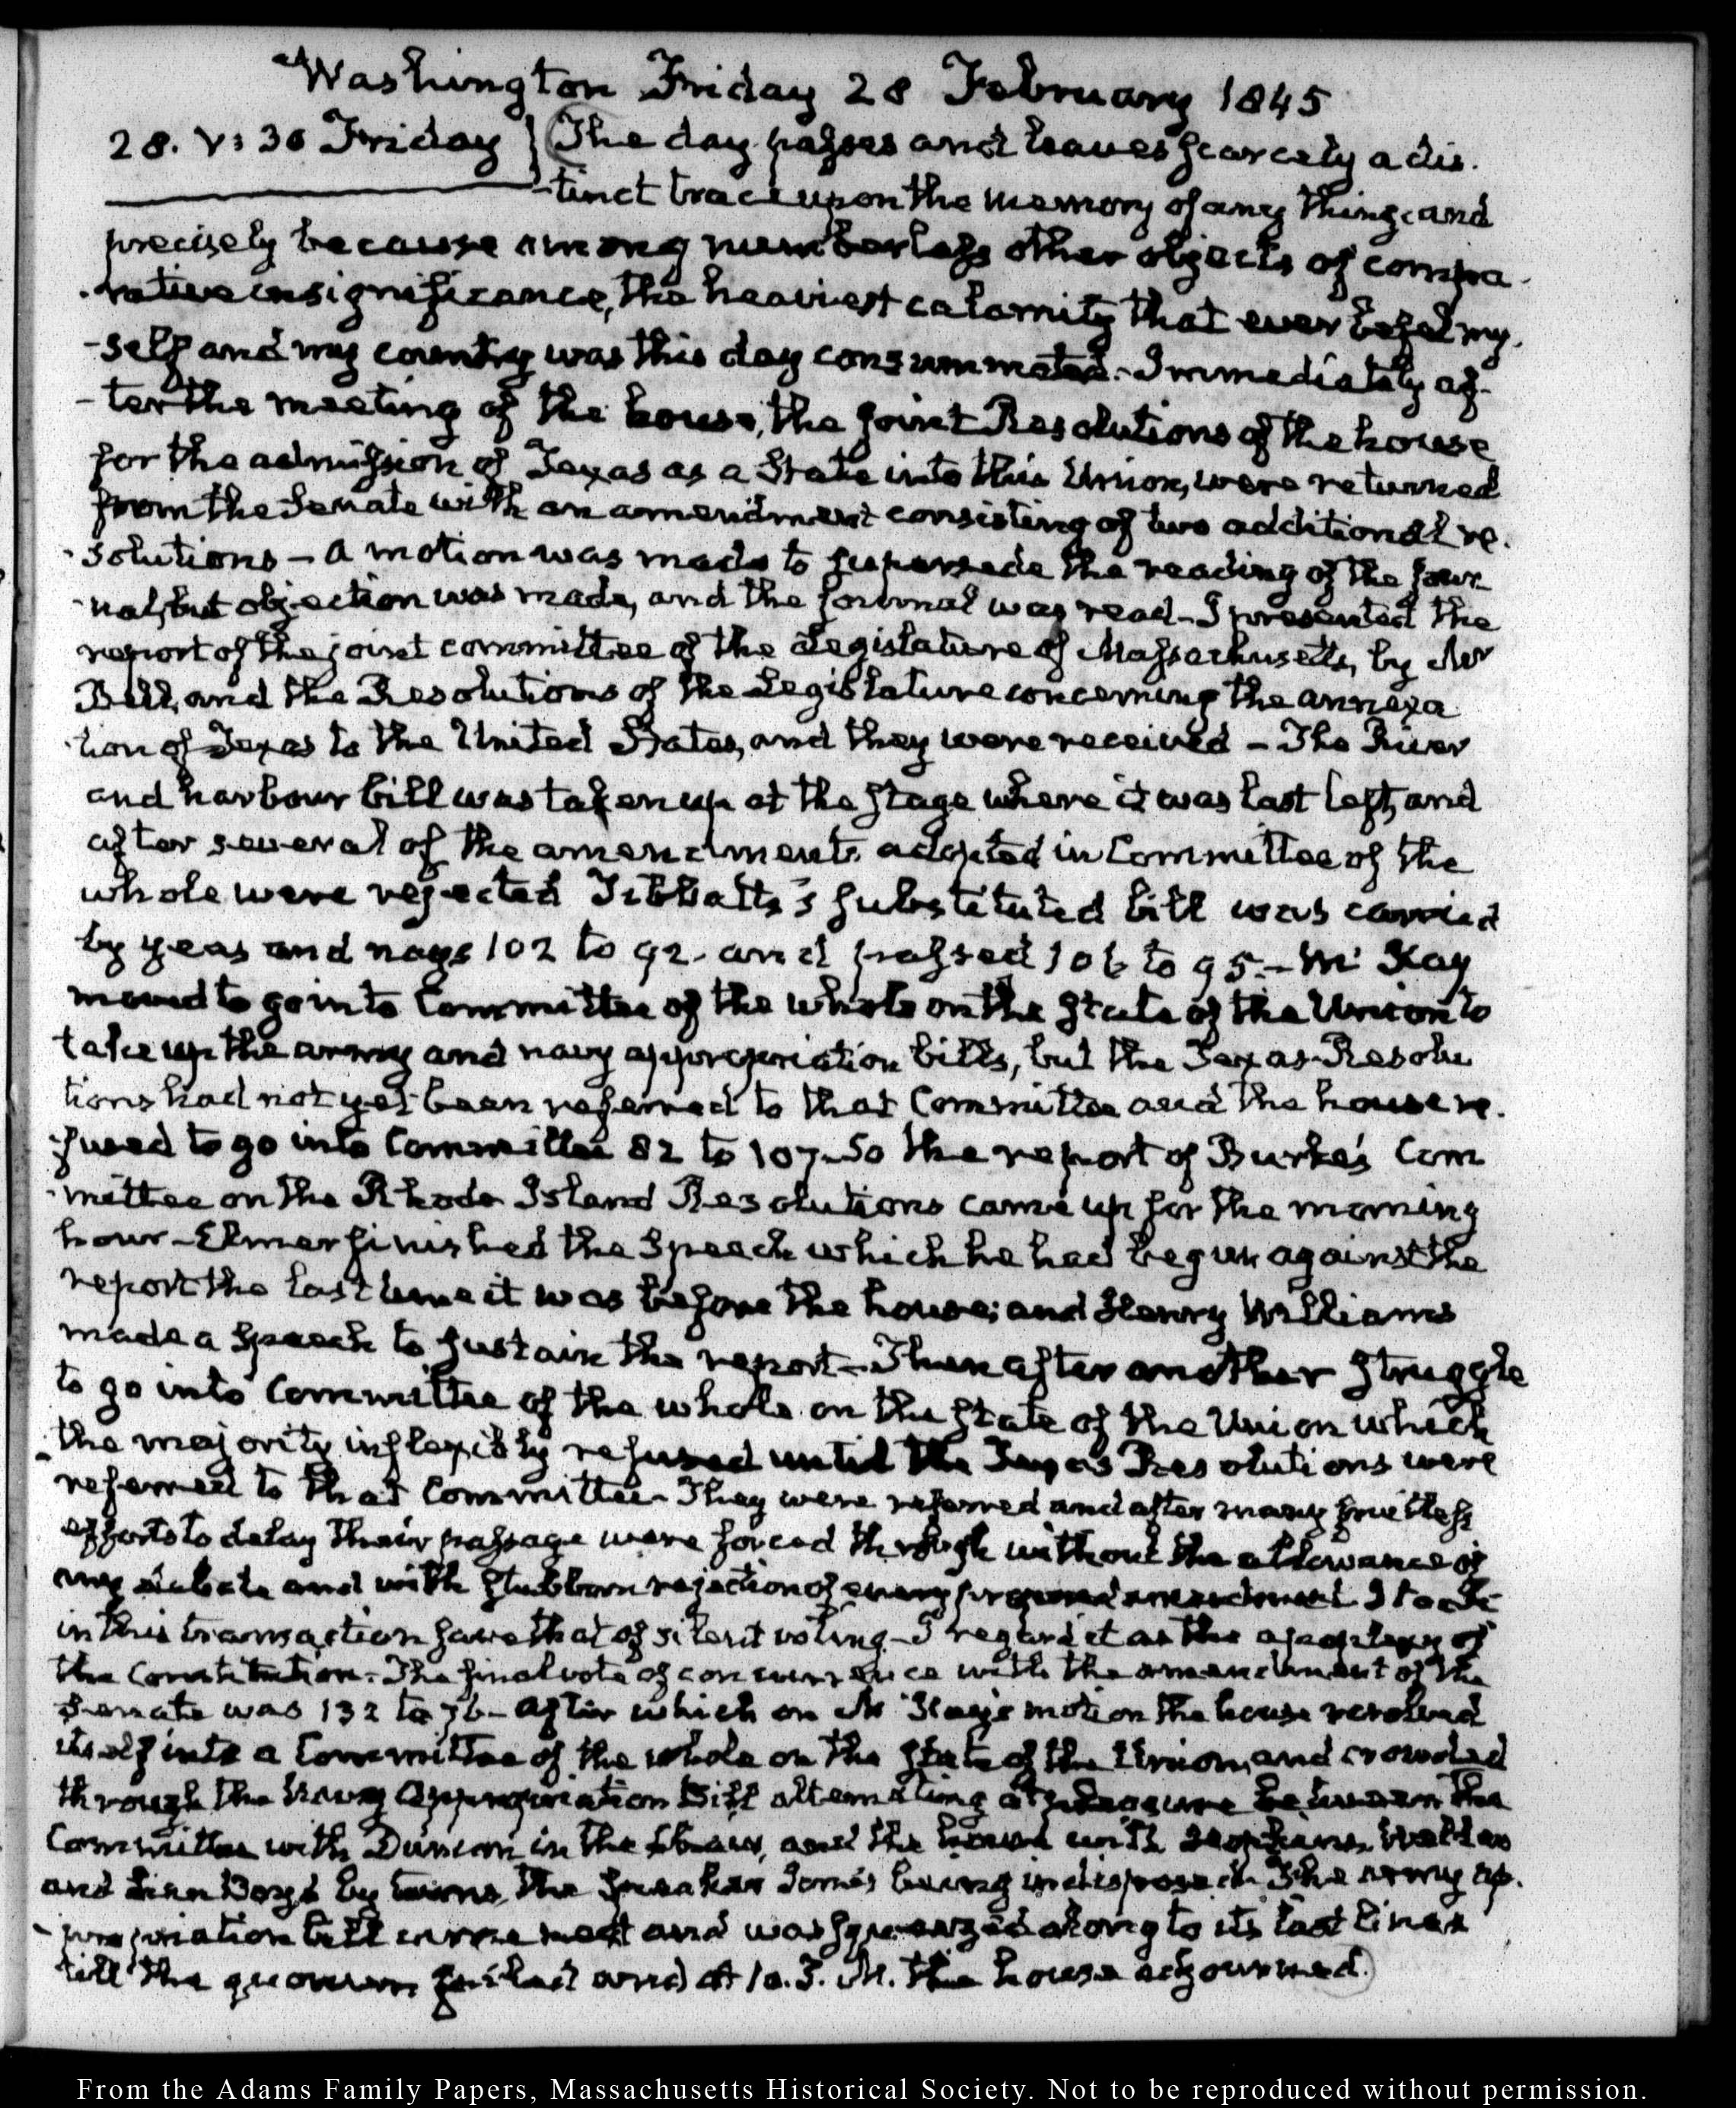 Washington Friday 28 February 1845
28. V:30 Friday } (The day passes and leaves scarcely a dis-
-tinct trace upon the memory of any thing, and
precisely because among numberless other objects of compa-
-rative insignificance, the heaviest calamity that ever befel my-
-self and my country was this day consummated. Immediately af-
-ter the meeting of the house, the joint Resolutions of the house
for the admission of Texas as a State into this Union, were returned
from the Senate with an amendment consisting of two additional re-
-solutions – a motion was made to supersede the reading of the jour-
-nal, but objection was made, and the journal was read – I presented the
report of the joint committee of the Legislature of Massachusetts, by Mr
Bell, and the Resolutions of the Legislature concerning the annexa
-tion of Texas to the United States, and they were received – The River
and harbour bill was taken up at the stage where it was last left, and
after several of the amendments adopted in Committee of the
whole were rejected Tibbatts's substituted bill was carried
by yeas and nays 102 to 92. and passed 106 to 95. – McKay
moved to go into Committee of the whole on the State of the Union to
take up the army and navy appropriation bills, but the Texas Resolu
tions had not yet been referred to that Committee and the house re-
-fused to go into Committee 82 to 107. So the report of Burke's Com
-mittee on the Rhode Island Resolutions came up for the morning
hour – Elmer finished the Speech which he had begun against the
report the last time it was before the house; and Henry Williams
made a Speech to sustain the report – Then after another struggle
to go into Committee of the whole on the State of the Union which
the majority inflexibly refused until the Texas Resolutions were
referred to that Committee – They were referred and after many fruitless
efforts to delay their passage were forced through without the allowance of
any debate and with stubborn rejection of every proposed amendment I took
in this transaction save that of silent voting – I regard it as the apoplexy of
the Constitution. The final vote of concurrence with the amendment of the
Senate was 132 to 76 – after which on McKay's motion the house resolved
itself into a Committee of the whole on the State of the Union, and crowded
through the Navy Appropriation Bill alternating at pleasure between the
Committee with Duncan in the chair, and the house with Hopkins, Weller
and Linn Boyd by turns, the Speaker Jones being indisposed. The army ap-
-propriation bill came next and was squeezed along to its last lines
till the quorum failed and at 10. P. M. the house adjourned.)
From the Adams Family Papers, Massachusetts Historical Society. Not to be reproduced without permission.